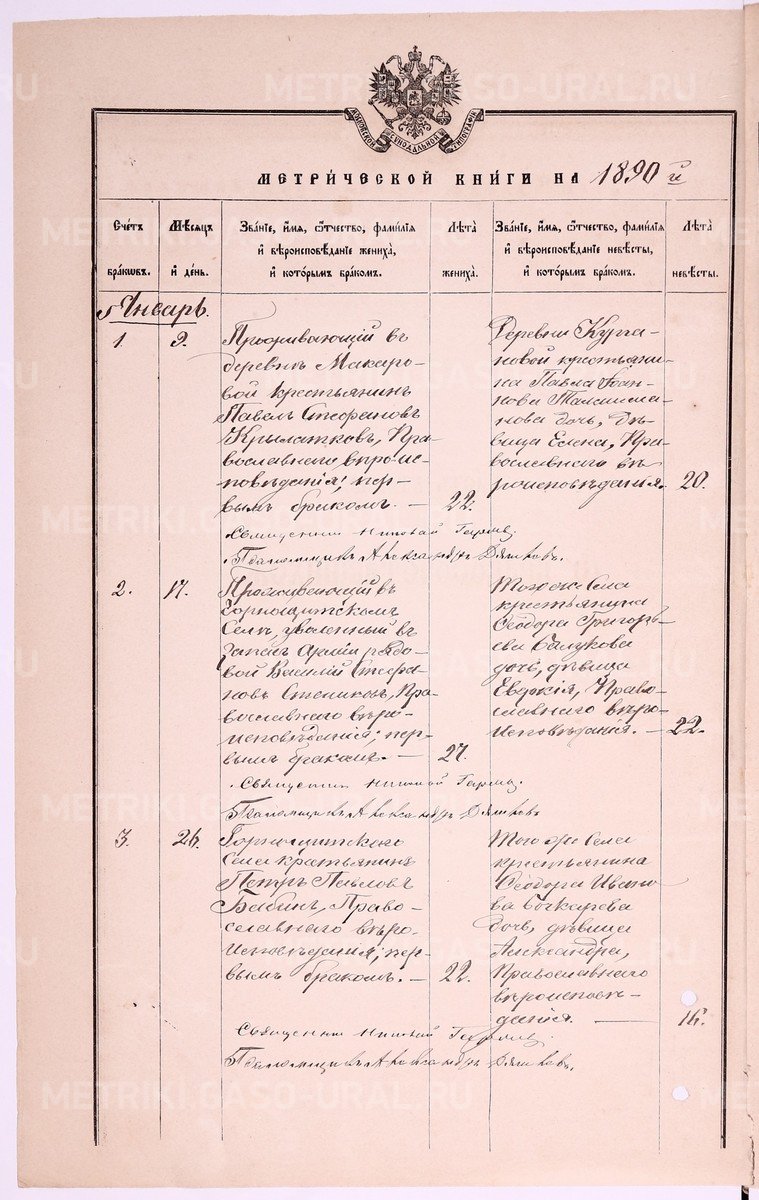 МОСКОВСКОЙ СѴНОДАЛЬНОЙ ТИПОГРАФІИ
МЕТРИ́ЧЕСКОЙ КНИ́ГИ НА 1890 й
Сче́тъ бра́кωвъ.
Мѣ́сѧцъ и҆ де́нь.
Зва́нїе, и҆́мѧ, ѻ҆́тчество, фами́лїѧ и҆ вѣроисповѣ́данїе жениха̀, и҆ кото́рымъ бра́комъ.
Лѣ́та жениха̀.
Зва́нїе, и҆́мѧ, ѻ҆́тчество, фами́лїѧ и҆ вѣроисповѣ́данїе невѣ́сты, и҆ кото́рымъ бра́комъ.
Лѣ́та невѣ́сты.
Январь.
1. 9.
Проживающій въ
деревнѣ Макаро-
вой крестьянинъ
Павелъ Стефановъ
Крылатковъ, Пра-
вославнаго вѣроис-
повѣданія; пер-
вымъ бракомъ. — 22.
Деревни Курга-
новой крестьяни-
на Павла Іоан-
нова Талашма-
нова дочь, дѣ-
вица Елена, Пра-
вославнаго вѣ-
роисповѣданія. 20.
Священникъ Николай
Псаломщикъ Александръ
2. 17.
Проживающій въ
Горнощитскомъ
Селѣ, уволенный въ
запасъ Арміи рядо-
вой Василій Стефа-
новъ Пра-
вославнаго вѣро-
исповѣданія; пер-
вымъ бракомъ. — 27.
Того же Села
крестьянина
Ѳеодора Григорь-
ева Балукова
дочь, дѣвица
Евдокія, Право-
славнаго вѣро-
исповѣданія. — 22.
Священникъ Николай
Псаломщикъ Александръ
3. 26.
Горнощитскаго
Села крестьянинъ
Петръ Павловъ
Бабинъ, Право-
славнаго вѣро-
исповѣданія; пер-
вымъ бракомъ. — 22.
Того же Села
крестьянина
Ѳеодора Ивано-
ва Бочкарева
дочь, дѣвица
Александра,
Православнаго
вѣроисповѣ-
данія. — 16.
Священникъ Николай
Псаломщикъ Александръ
METRIKI.GASO-URAL.RU